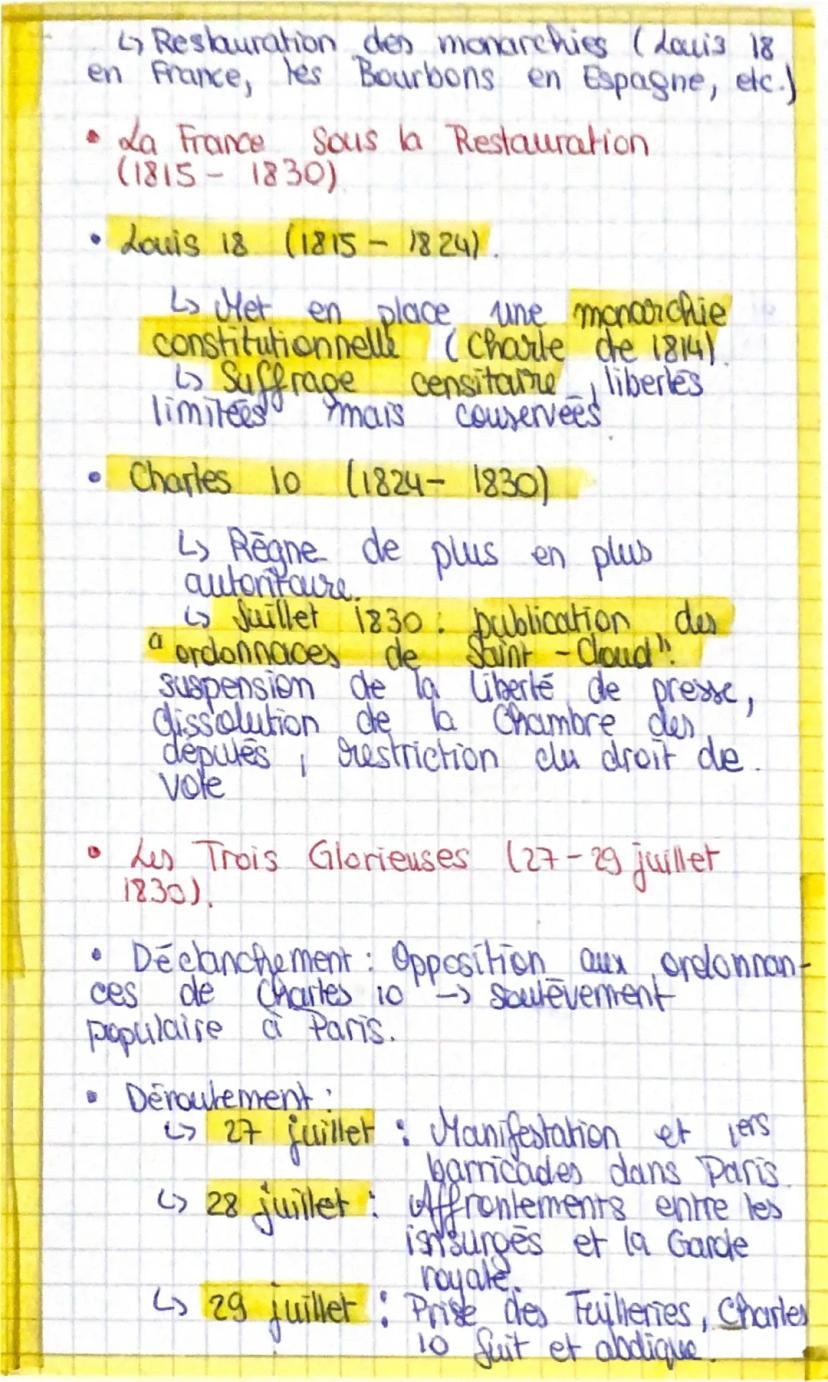 ↳ Restauration des monarchies (Louis 18
en France, les Bourbons en Espagne, etc.)
• La France sous la Restauration
(1815 - 1830)
• Louis 18 (1815 - 1824).
↳ Met en place une monarchie
constitutionnelle (Charte de 1814)
↳ Suffrage censitaire, libertés
limitées mais conservées
• Charles 10 (1824 - 1830)
↳ Règne de plus en plus
autoritaire.
↳ Juillet 1830 : publication des
"ordonnaces de Saint-Cloud":
suspension de la liberté de presse,
dissolution de la Chambre des
députés, restriction du droit de
vote
• Les Trois Glorieuses (27-29 juillet
1830).
• Déclanchement : Opposition aux ordonnan-
ces de Charles 10 → soulèvement
populaire à Paris.
• Déroulement :
↳ 27 juillet : Manifestation et 1ers
barricades dans Paris.
↳ 28 juillet : Affrontements entre les
insurgés et la Garde
royale.
↳ 29 juillet : Prise des Tuilleries, Charles
10 fuit et abdique.